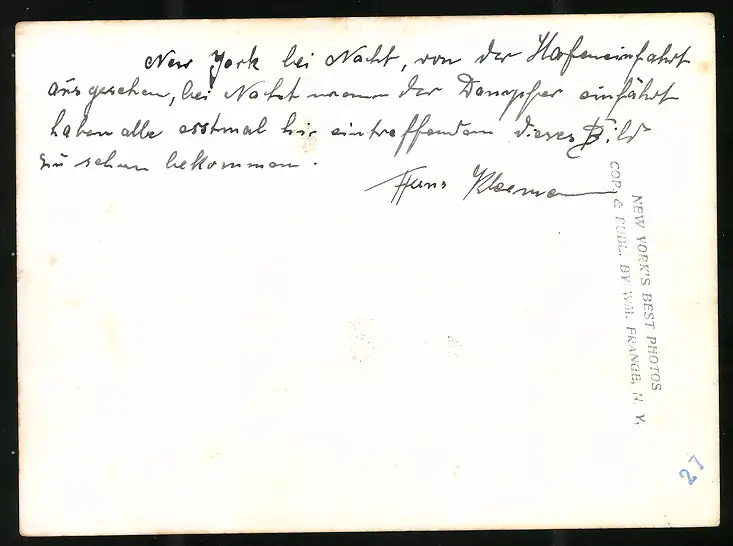 New York bei Nacht, von der Hafeneinfahrt
aus gesehen, bei Nacht wenn der Dampfer einfährt
haben alle erstmal hir eintreffenden dieses Bild
zu sehen bekommen.
Hans Kleeman
NEW YORK'S BEST PHOTOS
COP. & PUBL. BY WM. FRANGE, N. Y.
27